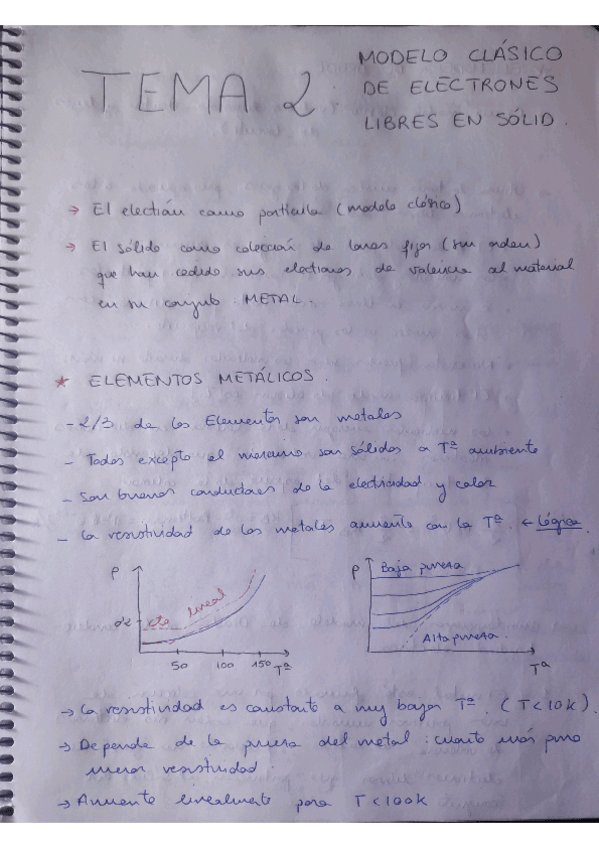 TEMA 2
MODELO CLÁSICO
DE ELECTRONES
LIBRES EN SÓLID.
→ El electrón como partícula (modelo clásico)
→ El sólido como colección de iones fijos (sin orden)
que han cedido sus electrones de valencia al material
en su conjunto: METAL.
* ELEMENTOS METÁLICOS.
- 2/3 de los Elementos son metales
- Todos excepto el mercurio son sólidos a Tª ambiente
- Son buenos conductores de la electricidad y calor
- La resistividad de los metales aumenta con la Tª. ← Lógica
ρ
cte
lineal
50 100 150 Tª
ρ
Baja pureza
Alta pureza.
Tª
→ La resistividad es constante a muy bajas Tª. (T<10K).
→ Depende de la pureza del metal: cuanto más puro
menor resistividad.
→ Aumenta linealmente para T<100K